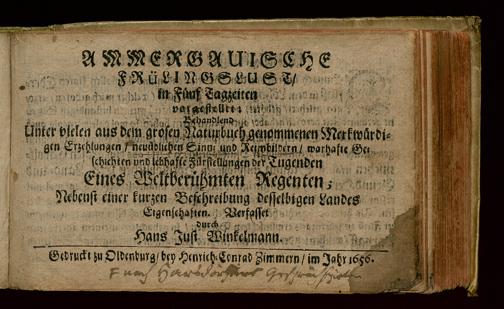 AMMERGAUISCHE
FRÜLINGSLUST/
in Fünf Tagzeiten
vorgestellt:
Behandlend
Unter vielen aus dem grosen Naturbuch genommenen Merkwürdi-
gen Erzehlungen/ neuüblichen Sinn- und Reimbildern/ warhafte Ge-
schichten und lebhafte Fürstellungen der Tugenden
Eines Weltberühmten Regenten;
Nebenst einer kurzen Beschreibung desselbigen Landes
Eigenschaften. Verfasset
durch
Hans Just Winkelmann.
Gedruckt zu Oldenburg/ bey Henrich-Conrad Zimmern/ im Jahr 1656.
nach Harsdörffers Gesprächspiele